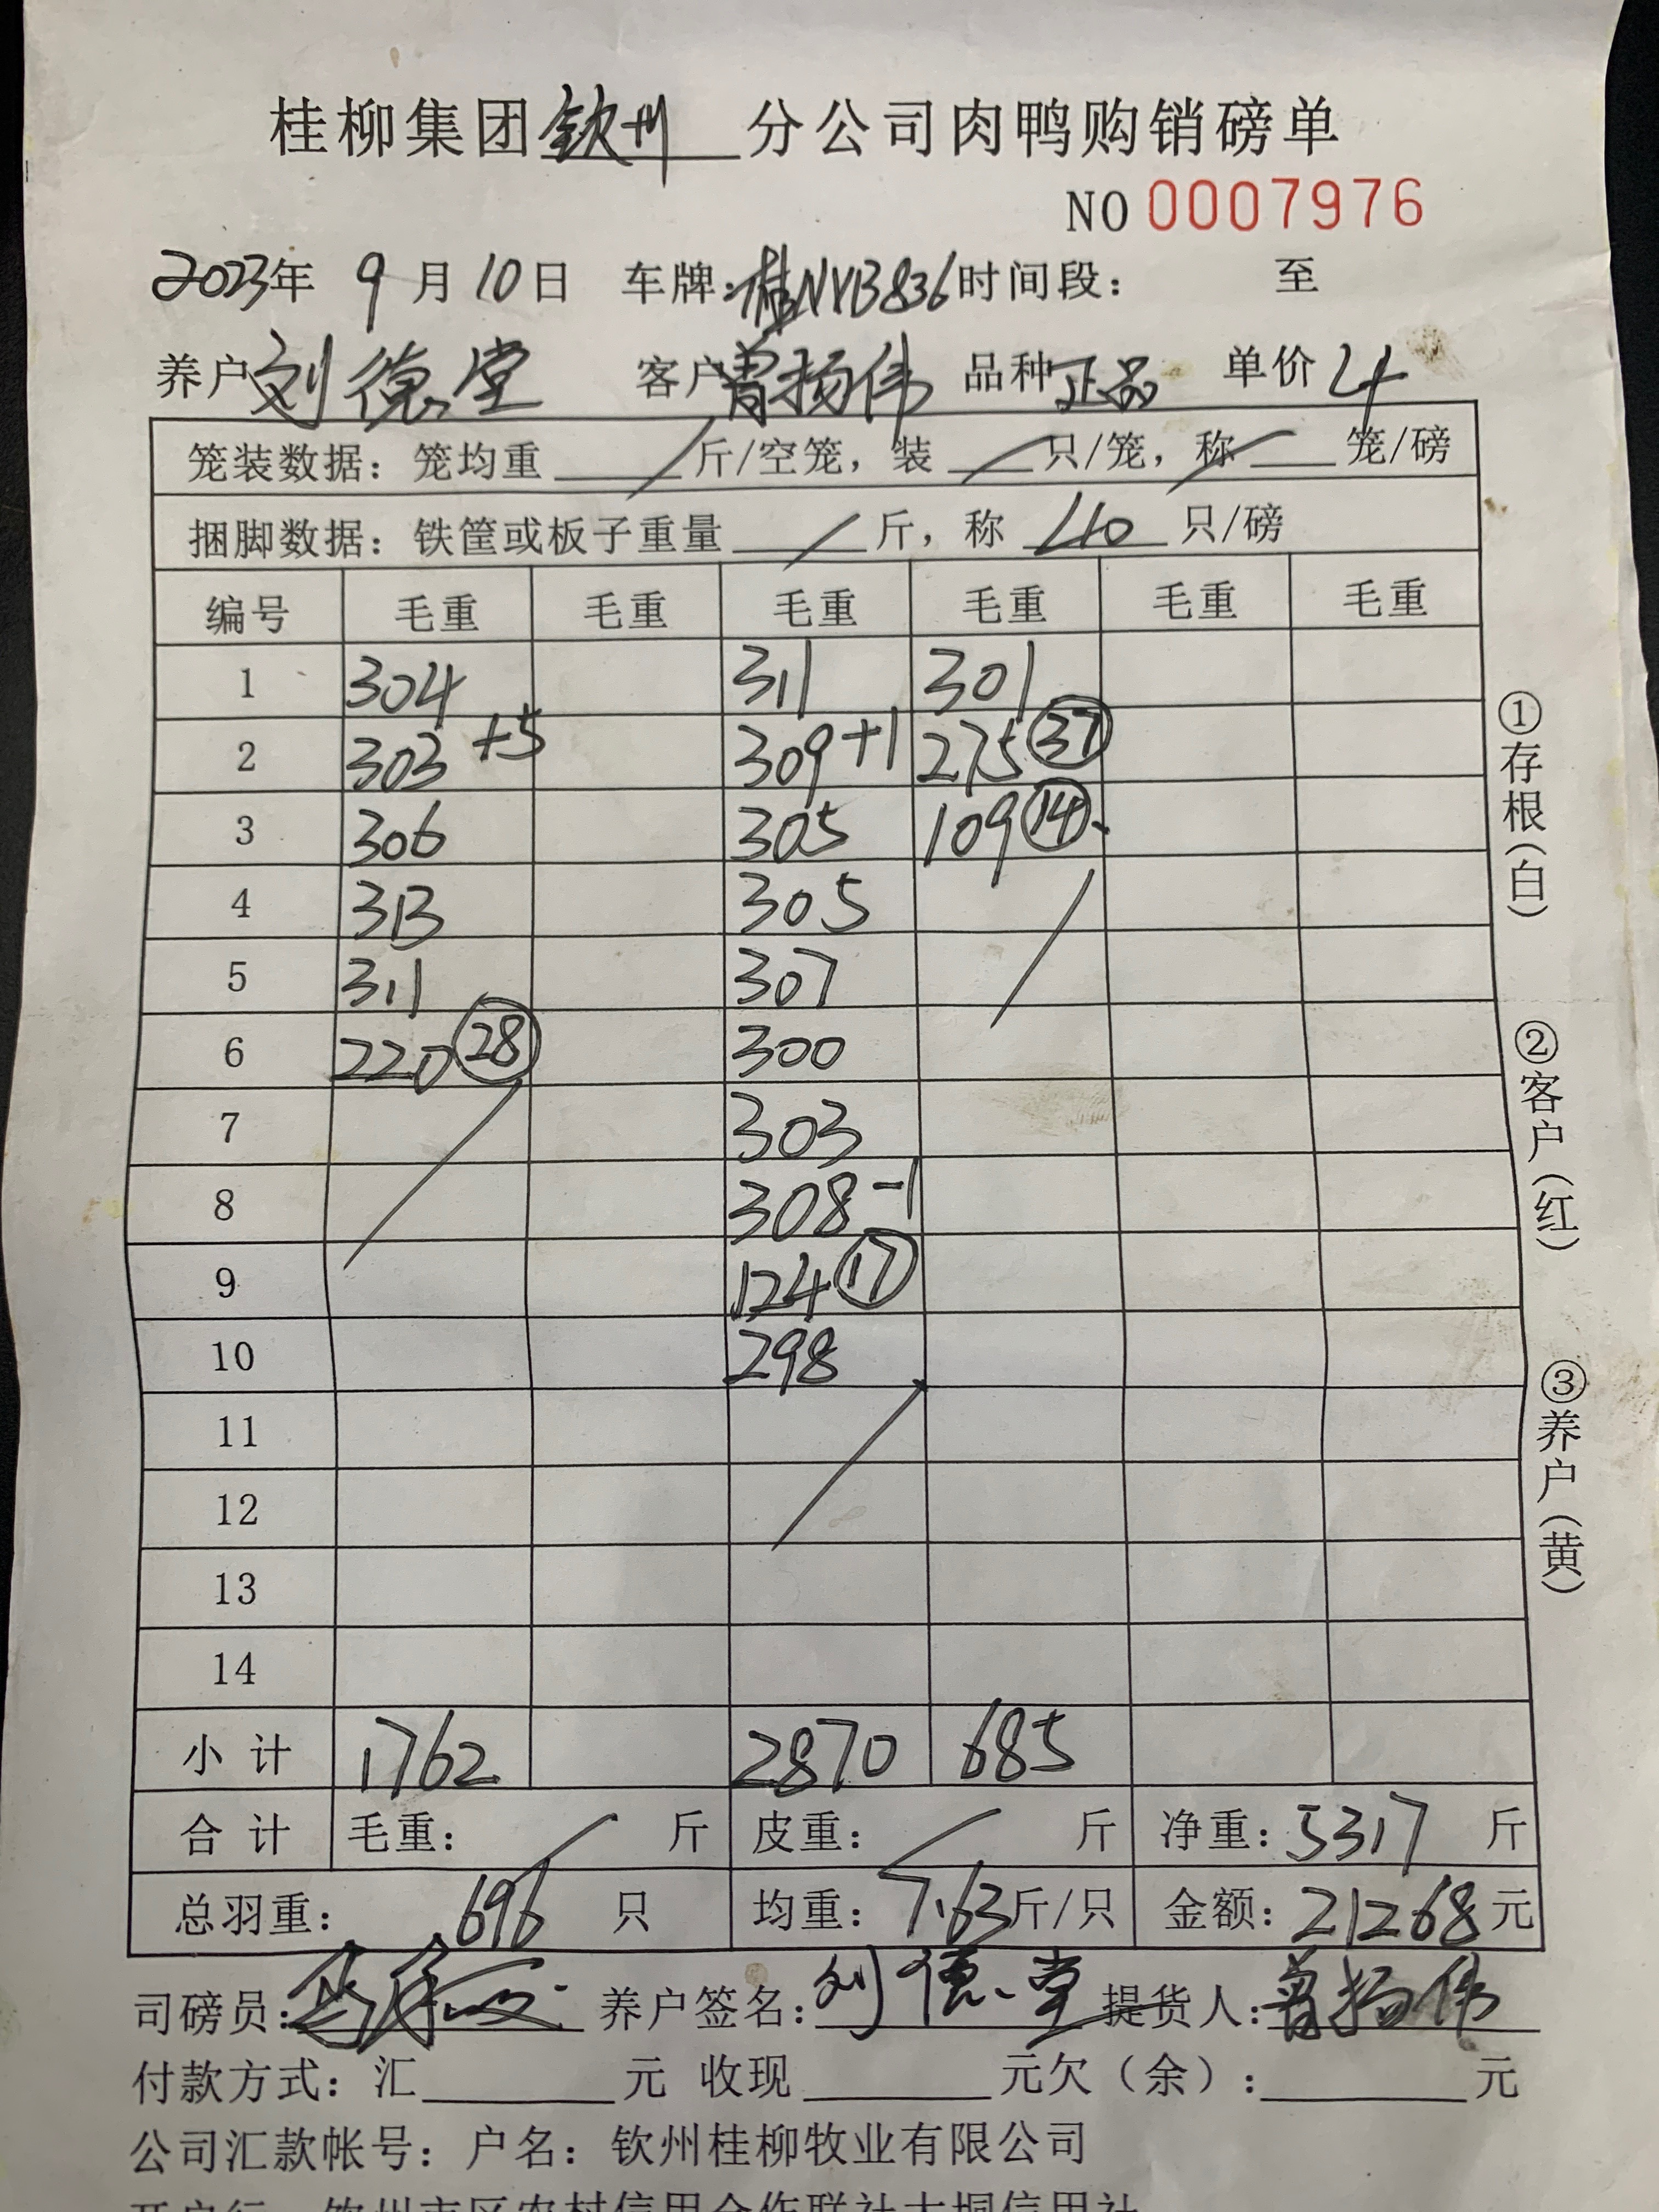 桂柳集团钦州分公司肉鸭购销磅单
NO 0007976
2023年 9月10日 车牌:桂NYB836 时间段: 至
养户刘德堂 客户曾扬伟 品种正品 单价4
笼装数据: 笼均重 / 斤/空笼, 装 / 只/笼, 称 / 笼/磅
捆脚数据: 铁筐或板子重量 / 斤, 称 40 只/磅
编号 毛重 毛重 毛重 毛重 毛重 毛重
1 304 311 301
2 303 +5 309 +1 275 (37)
3 306 305 109 (14)
4 313 305
5 311 307
6 220 (28) 300
7 303
8 308 -1
9 124 (17)
10 298
11
12
13
14
小计 1762 2870 685
合计 毛重: / 斤 皮重: / 斤 净重: 5317 斤
总羽重: 696 只 均重: 7.63 斤/只 金额: 21268 元
司磅员: 养户签名: 刘德堂 提货人: 曾扬伟
付款方式: 汇 元 收现 元欠(余): 元
公司汇款帐号: 户名: 钦州桂柳牧业有限公司
开户行: 钦州市区农村信用合作联社大垌信用社
①存根(白)
②客户(红)
③养户(黄)